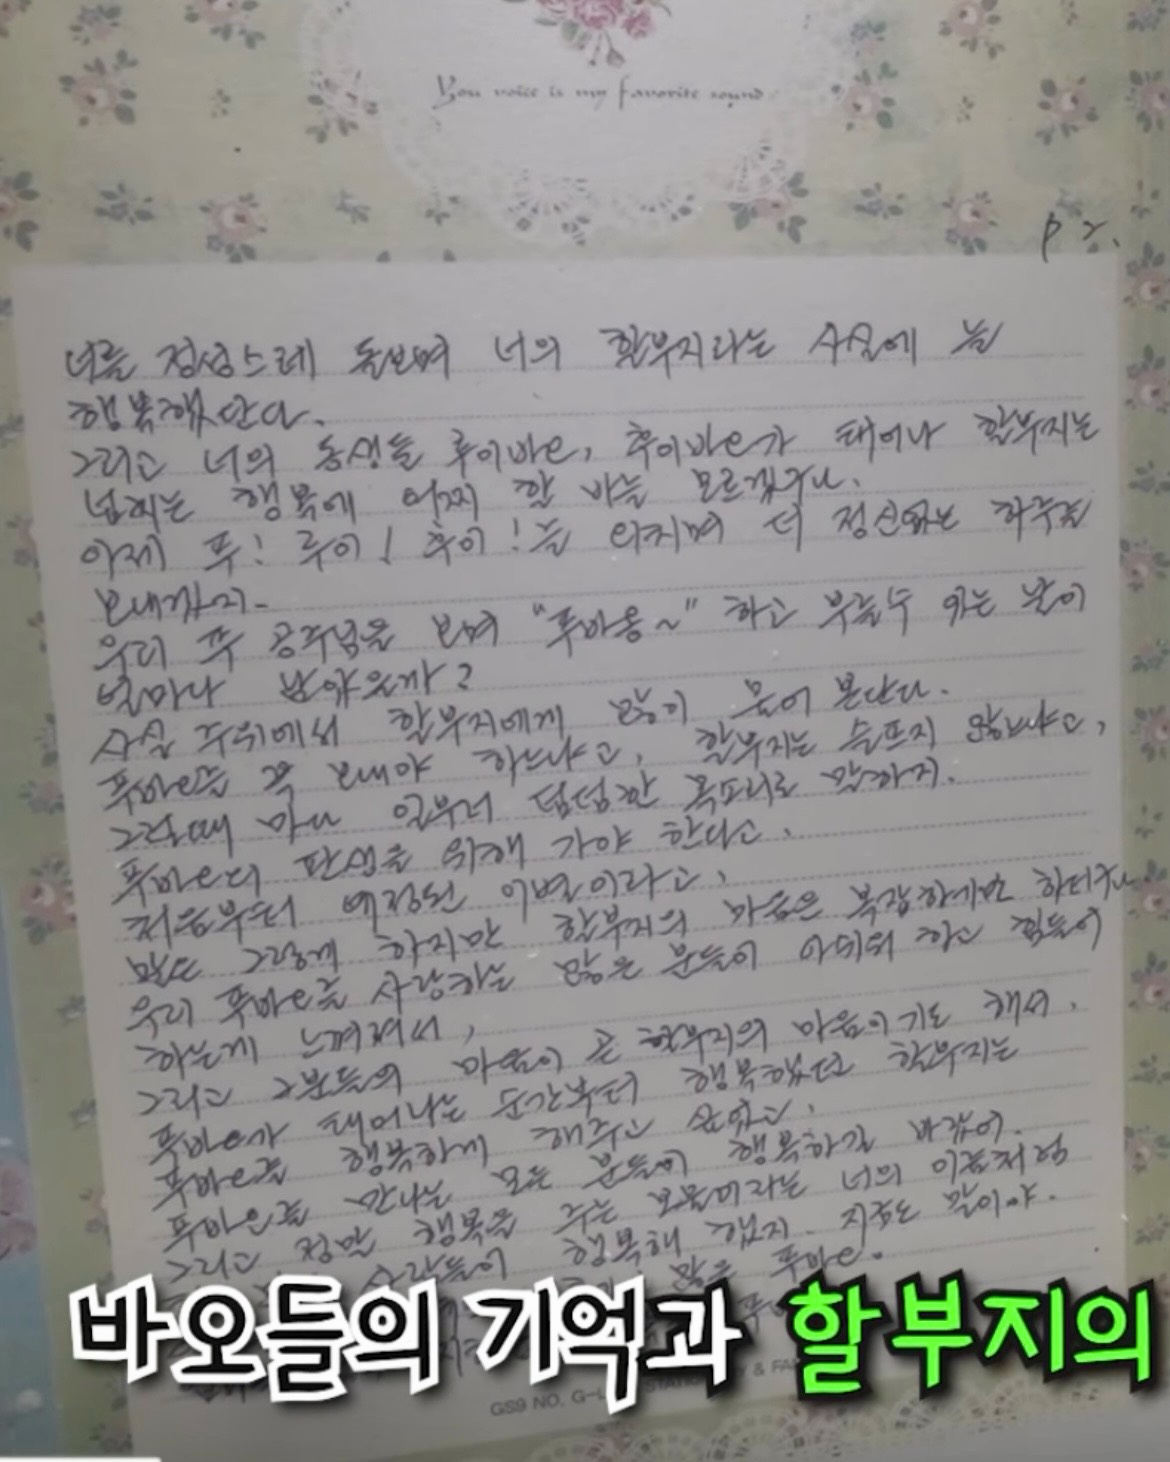 You voice is my favorite sound
p 2.
너를 정성스레 돌보며 너의 할부지라는 사실에 늘
행복했단다.
그리고 너의 동생들 루이바오, 후이바오가 태어나 할부지는
넘치는 행복에 어찌 할 바를 모르겠구나.
이제 푸! 루이! 후이!를 외치며 더 정신없는 하루를
보내까지.
우리 푸 공주님을 보며 "푸바옹~" 하고 부를 수 있는 날이
얼마나 남았을까?
사실 주위에서 할부지에게 많이 물어 본단다.
푸바오를 꼭 보내야 하느냐고, 할부지는 슬프지 않느냐고,
그럴때 마다 일부러 덤덤한 목소리로 말하지.
푸바오의 판생을 위해 가야 한다고,
처음부터 예정된 이별이라고,
말은 그렇게 하지만 할부지의 마음은 복잡하기만 하더구나
우리 푸바오를 사랑하는 많은 분들이 아쉬워 하고 힘들어
하는게 느껴져서,
그리고 그분들의 마음이 곧 할부지의 마음이기도 해서.
푸바오가 태어나는 순간부터 행복했던 할부지는
푸바오를 행복하게 해주고 싶었고,
푸바오를 만나는 모든 분들이 행복하길 바랐어.
그리고 정말 행복을 주는 보물이라는 너의 이름처럼
사람들이 행복해 했지. 지금도 말이야.
많은 푸바오.
바오들의 기억과 할부지의
GS9 NO. G-